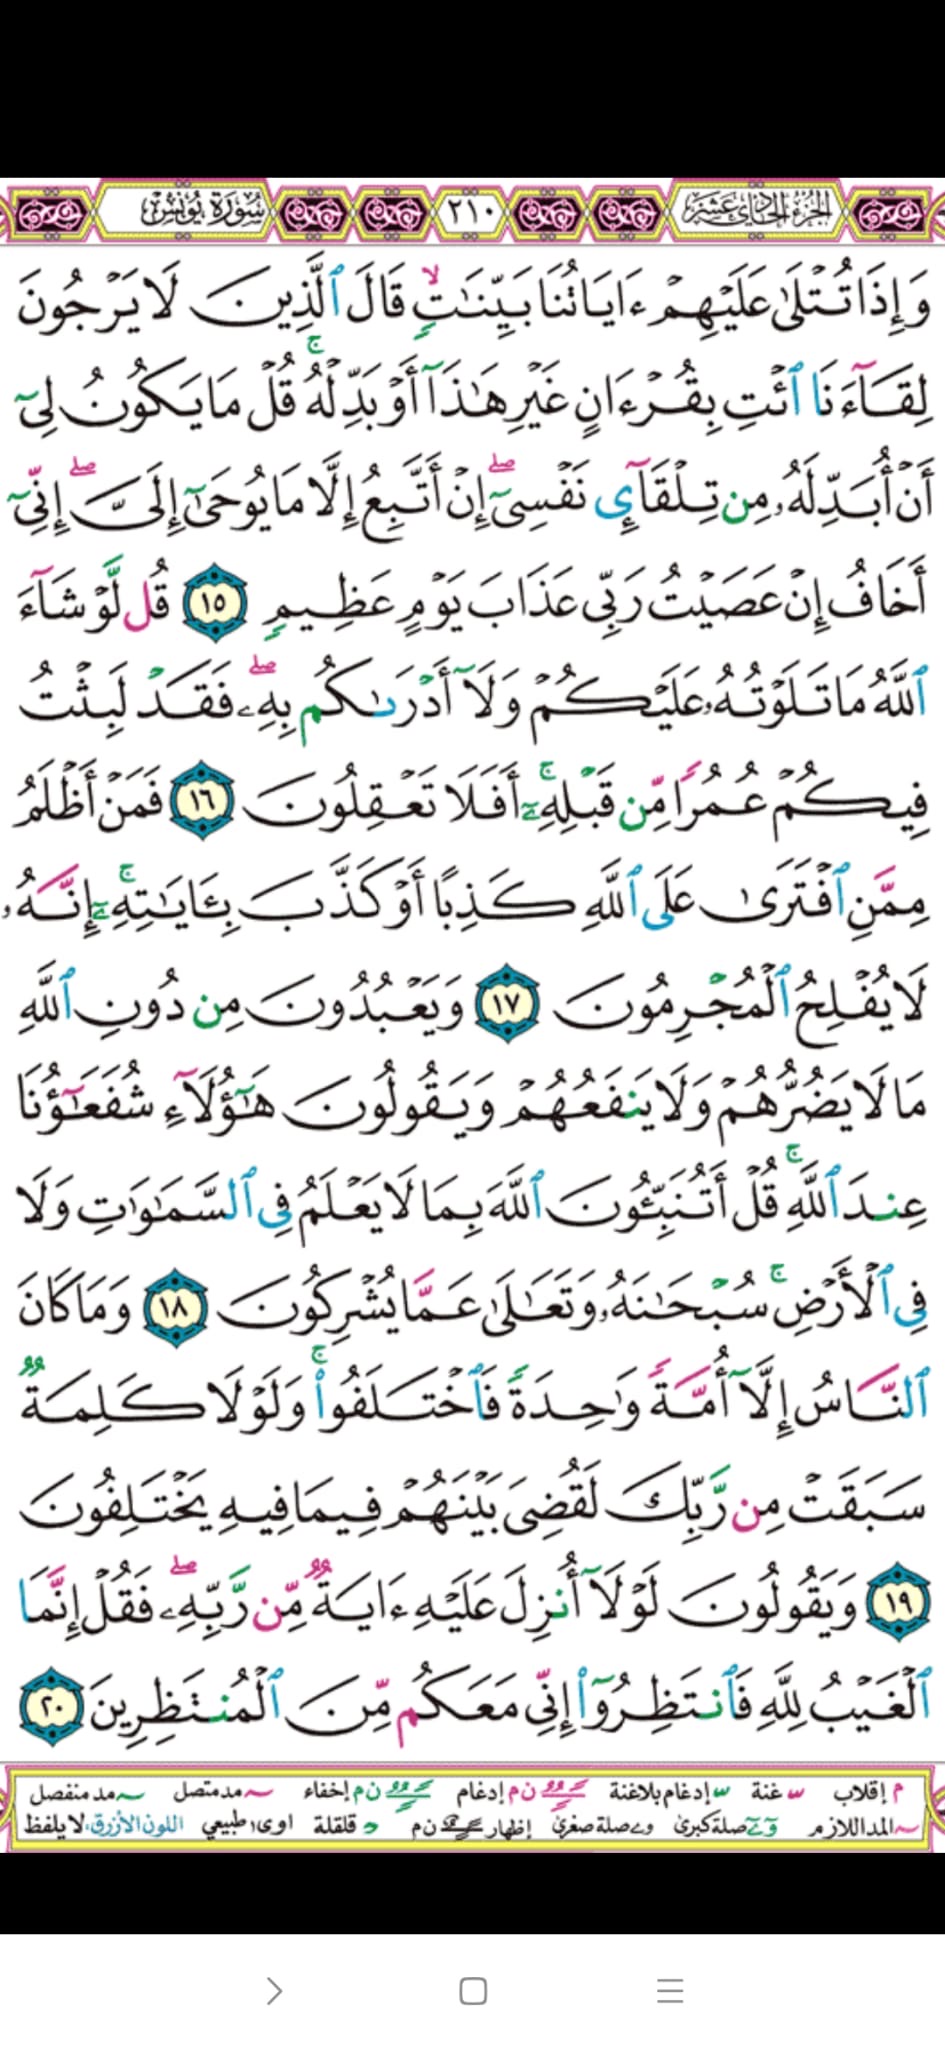 الجزء الحادي عشر ٢١٠ سورة يونس
وَإِذَا تُتْلَىٰ عَلَيْهِمْ ءَايَاتُنَا بَيِّنَٰتٍۙ قَالَ ٱلَّذِينَ لَا يَرْجُونَ
لِقَآءَنَا ٱئْتِ بِقُرْءَانٍ غَيْرِ هَٰذَآ أَوْ بَدِّلْهُۚ قُلْ مَا يَكُونُ لِىٓ
أَنْ أُبَدِّلَهُۥ مِن تِلْقَآئِ نَفْسِىٓۖ إِنْ أَتَّبِعُ إِلَّا مَا يُوحَىٰٓ إِلَىَّۖ إِنِّىٓ
أَخَافُ إِنْ عَصَيْتُ رَبِّى عَذَابَ يَوْمٍ عَظِيمٍ ١٥ قُل لَّوْ شَآءَ
ٱللَّهُ مَا تَلَوْتُهُۥ عَلَيْكُمْ وَلَآ أَدْرَىٰكُم بِهِۦۖ فَقَدْ لَبِثْتُ
فِيكُمْ عُمُرًا مِّن قَبْلِهِۦٓۚ أَفَلَا تَعْقِلُونَ ١٦ فَمَنْ أَظْلَمُ
مِمَّنِ ٱفْتَرَىٰ عَلَى ٱللَّهِ كَذِبًا أَوْ كَذَّبَ بِـَٔايَٰتِهِۦٓۚ إِنَّهُۥ
لَا يُفْلِحُ ٱلْمُجْرِمُونَ ١٧ وَيَعْبُدُونَ مِن دُونِ ٱللَّهِ
مَا لَا يَضُرُّهُمْ وَلَا يَنفَعُهُمْ وَيَقُولُونَ هَٰٓؤُلَآءِ شُفَعَٰٓؤُنَا
عِندَ ٱللَّهِۚ قُلْ أَتُنَبِّـُٔونَ ٱللَّهَ بِمَا لَا يَعْلَمُ فِى ٱلسَّمَٰوَٰتِ وَلَا
فِى ٱلْأَرْضِۚ سُبْحَٰنَهُۥ وَتَعَٰلَىٰ عَمَّا يُشْرِكُونَ ١٨ وَمَا كَانَ
ٱلنَّاسُ إِلَّآ أُمَّةً وَٰحِدَةً فَٱخْتَلَفُوا۟ۚ وَلَوْلَا كَلِمَةٌ
سَبَقَتْ مِن رَّبِّكَ لَقُضِىَ بَيْنَهُمْ فِيمَا فِيهِ يَخْتَلِفُونَ
١٩ وَيَقُولُونَ لَوْلَآ أُنزِلَ عَلَيْهِ ءَايَةٌ مِّن رَّبِّهِۦۖ فَقُلْ إِنَّمَا
ٱلْغَيْبُ لِلَّهِ فَٱنتَظِرُوٓا۟ إِنِّى مَعَكُم مِّنَ ٱلْمُنتَظِرِينَ ٢٠
م إقلاب غنة إدغام بلاغنة ن م إدغام ن م إخفاء مد متصل مد منفصل
المد اللازم صلة كبرى صلة صغرى إظهار ن م قلقلة اوى طبيعي اللون الأزرق، لا يلفظ